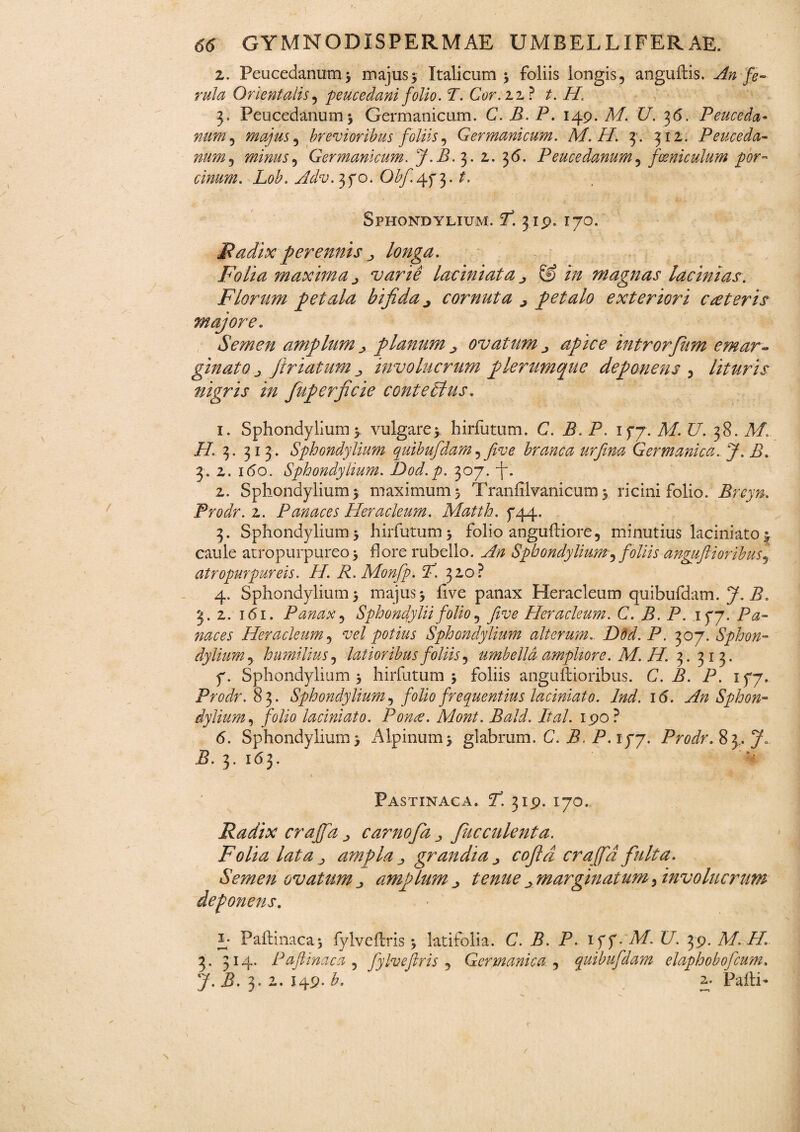 66 GYMNODISPERMAE UMBELLIFERAE.
2. Peucedanum; majus; Italicum; foliis longis, angustis. An fe-
rula Orientalis, peucedani folio. T. Cor. 22? t. H.
3. Peucedanum; Germanicum. C. B. P. 149. M. U. 36. Peuceda-
num, majus, brevioribus foliis, Germanicum. M. H. 3. 312. Peuceda-
num, minus, Germanicum. J. B. 3. 2. 36. Peucedanum, fœniculum por-
cinum. Lob. Adv. 350. Obs. 453. t.
SPHONDYLIUM. T. 319. 170.
Radix perennis, longa.
Folia maxima, varié laciniata, & in magnas lacinias.
Florum petala bifida, cornuta, petalo exteriori cæteris
majore.
Semen amplum, planum, ovatum, apice introrsum emar-
ginato, striatum, involucrum plerumque deponens, lituris
nigris in superficie contectus.
1. Sphondylium; vulgare; hirsutum. C. B. P. 157. M. U. 38. M.
H. 3. 313. Sphondylium quibusdam, sive branca ursina Germanica. J. B.
3. 2. 160. Sphondylium. Dod. p. 307. †.
2. Sphondylium; maximum; Transilvanicum; ricini folio. Breyn.
Prodr. 2. Panaces Heracleum. Matth. 544.
3. Sphondylium; hirsutum; folio angustiore, minutius laciniato;
caule atropurpureo; flore rubello. An Sphondylium, foliis angustioribus,
atropurpureis. H. R. Monsp. T. 320?
4. Sphondylium; majus; sive panax Heracleum quibusdam. J. B.
3. 2. 161. Panax, Sphondylii folio, sive Heracleum. C. B. P. 157. Pa-
naces Heracleum, vel potius Sphondylium alterum. Dod. P. 307. Sphon-
dylium, humilius, latioribus foliis, umbellâ ampliore. M. H. 3. 313.
5. Sphondylium; hirsutum; foliis angustioribus. C. B. P. 157.
Prodr. 83. Sphondylium, folio frequentius laciniato. Ind. 16. An Sphon-
dylium, folio laciniato. Ponæ. Mont. Bald. Ital. 190?
6. Sphondylium; Alpinum; glabrum. C. B. P. 157. Prodr. 83. J.
B. 3. 163.
PASTINACA. T. 319. 170.
Radix crassa, carnosa, succulenta.
Folia lata, ampla, grandia, costâ crassâ fulta.
Semen ovatum, amplum, tenue, marginatum, involucrum
deponens.
1. Pastinaca; sylvestris; latifolia. C. B. P. 155. M. U. 39. M. H.
3. 314. Pastinaca, sylvestris, Germanica, quibusdam elaphoboscum.
J. B. 3. 2. 149. b. 2. Pasti-